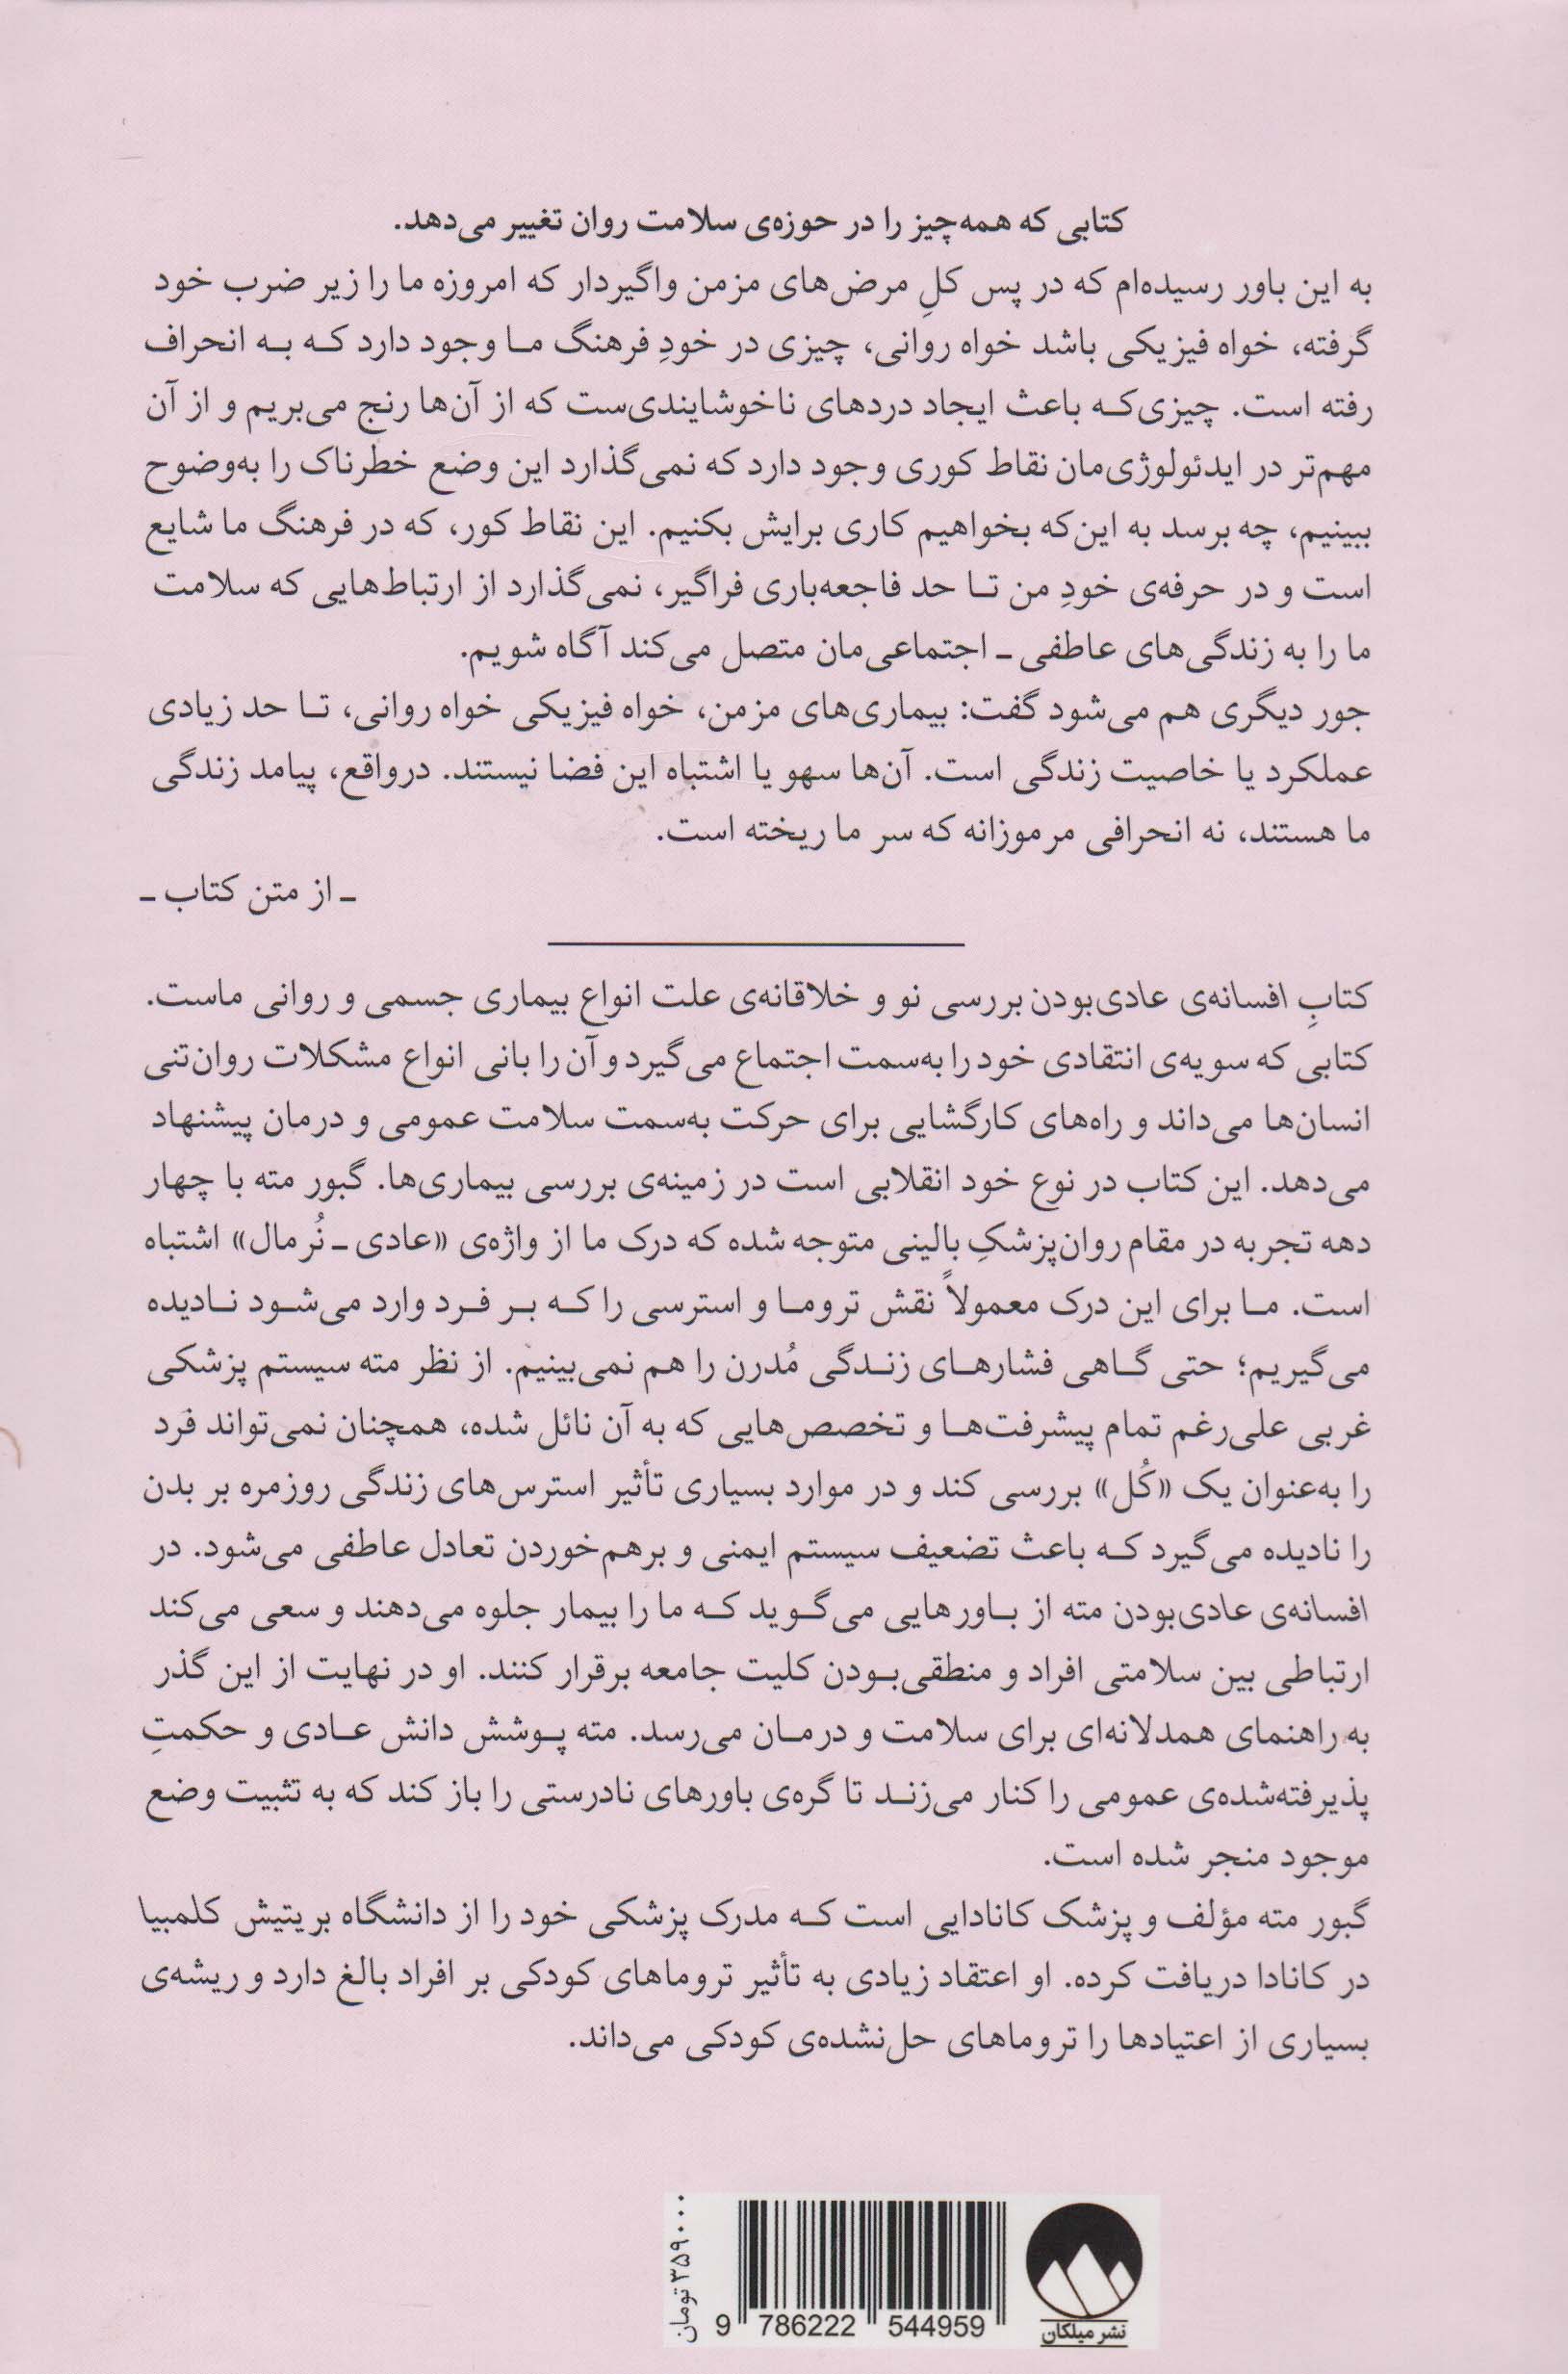 کتابی که همه‌چیز را در حوزه‌ی سلامت روان تغییر می‌دهد.
به این باور رسیده‌ام که در پس کلِ مرض‌های مزمن واگیردار که امروزه ما را زیر ضرب خود
گرفته، خواه فیزیکی باشد خواه روانی، چیزی در خودِ فرهنگ ما وجود دارد که به انحراف
رفته است. چیزی‌که باعث ایجاد دردهای ناخوشایندی‌ست که از آن‌ها رنج می‌بریم و از آن
مهم‌تر در ایدئولوژی‌مان نقاط کوری وجود دارد که نمی‌گذارد این وضع خطرناک را به‌وضوح
ببینیم، چه برسد به این‌که بخواهیم کاری برایش بکنیم. این نقاط کور، که در فرهنگ ما شایع
است و در حرفه‌ی خودِ من تا حد فاجعه‌باری فراگیر، نمی‌گذارد از ارتباط‌هایی که سلامت
ما را به زندگی‌های عاطفی ـ اجتماعی‌مان متصل می‌کند آگاه شویم.
جور دیگری هم می‌شود گفت: بیماری‌های مزمن، خواه فیزیکی خواه روانی، تا حد زیادی
عملکرد یا خاصیت زندگی است. آن‌ها سهو یا اشتباه این فضا نیستند. درواقع، پیامد زندگی
ما هستند، نه انحرافی مرموزانه که سر ما ریخته است.
ـ از متن کتاب ـ
کتابِ افسانه‌ی عادی‌بودن بررسی نو و خلاقانه‌ی علت انواع بیماری جسمی و روانی ماست.
کتابی که سویه‌ی انتقادی خود را به‌سمت اجتماع می‌گیرد و آن را بانی انواع مشکلات روان‌تنی
انسان‌ها می‌داند و راه‌های کارگشایی برای حرکت به‌سمت سلامت عمومی و درمان پیشنهاد
می‌دهد. این کتاب در نوع خود انقلابی است در زمینه‌ی بررسی بیماری‌ها. گبور مته با چهار
دهه تجربه در مقام روان‌پزشکِ بالینی متوجه شده که درک ما از واژه‌ی «عادی ـ نُرمال» اشتباه
است. ما برای این درک معمولاً نقش تروما و استرسی را که بر فرد وارد می‌شود نادیده
می‌گیریم؛ حتی گاهی فشارهای زندگی مُدرن را هم نمی‌بینیم. از نظر مته سیستم پزشکی
غربی علی‌رغم تمام پیشرفت‌ها و تخصص‌هایی که به آن نائل شده، همچنان نمی‌تواند فرد
را به‌عنوان یک «کُل» بررسی کند و در موارد بسیاری تأثیر استرس‌های زندگی روزمره بر بدن
را نادیده می‌گیرد که باعث تضعیف سیستم ایمنی و برهم‌خوردن تعادل عاطفی می‌شود. در
افسانه‌ی عادی‌بودن مته از باورهایی می‌گوید که ما را بیمار جلوه می‌دهند و سعی می‌کند
ارتباطی بین سلامتی افراد و منطقی‌بودن کلیت جامعه برقرار کنند. او در نهایت از این گذر
به راهنمای همدلانه‌ای برای سلامت و درمان می‌رسد. مته پوشش دانش عادی و حکمتِ
پذیرفته‌شده‌ی عمومی را کنار می‌زند تا گره‌ی باورهای نادرستی را باز کند که به تثبیت وضع
موجود منجر شده است.
گبور مته مؤلف و پزشک کانادایی است که مدرک پزشکی خود را از دانشگاه بریتیش کلمبیا
در کانادا دریافت کرده. او اعتقاد زیادی به تأثیر تروماهای کودکی بر افراد بالغ دارد و ریشه‌ی
بسیاری از اعتیادها را تروماهای حل‌نشده‌ی کودکی می‌داند.
۳۵۹۰۰۰ تومان
9 786222 544959
نشر میلکان